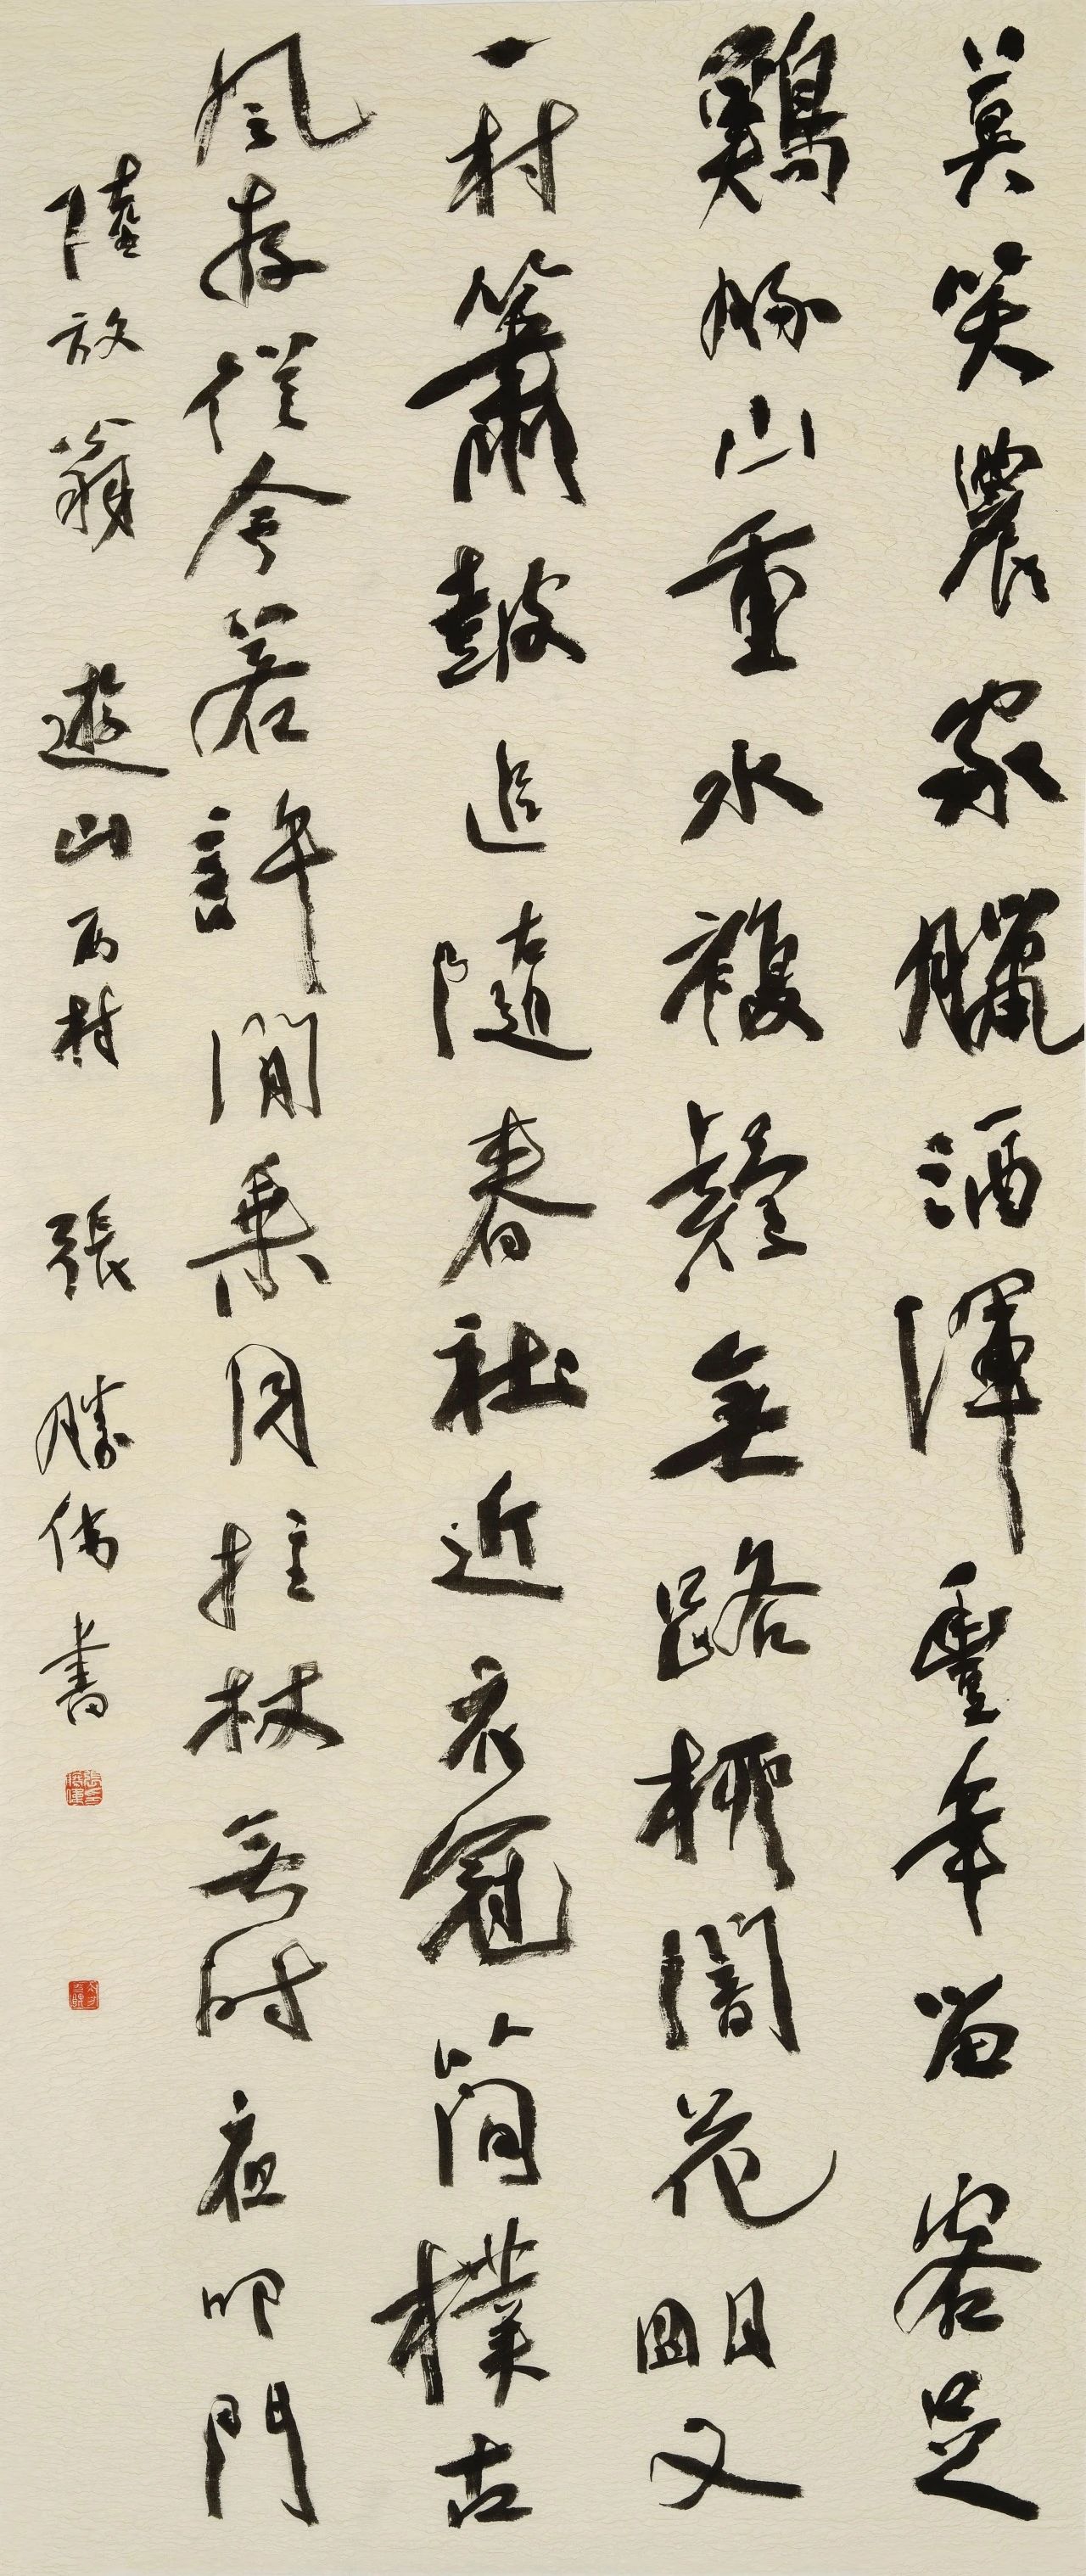 莫笑農家臘酒渾豐年留客足
鷄豚山重水複疑無路柳闇花明又
一村簫鼓追隨春社近衣冠簡樸古
風存從今若許閒乘月拄杖無時夜叩門
陸放翁 遊山西村 張勝偉書